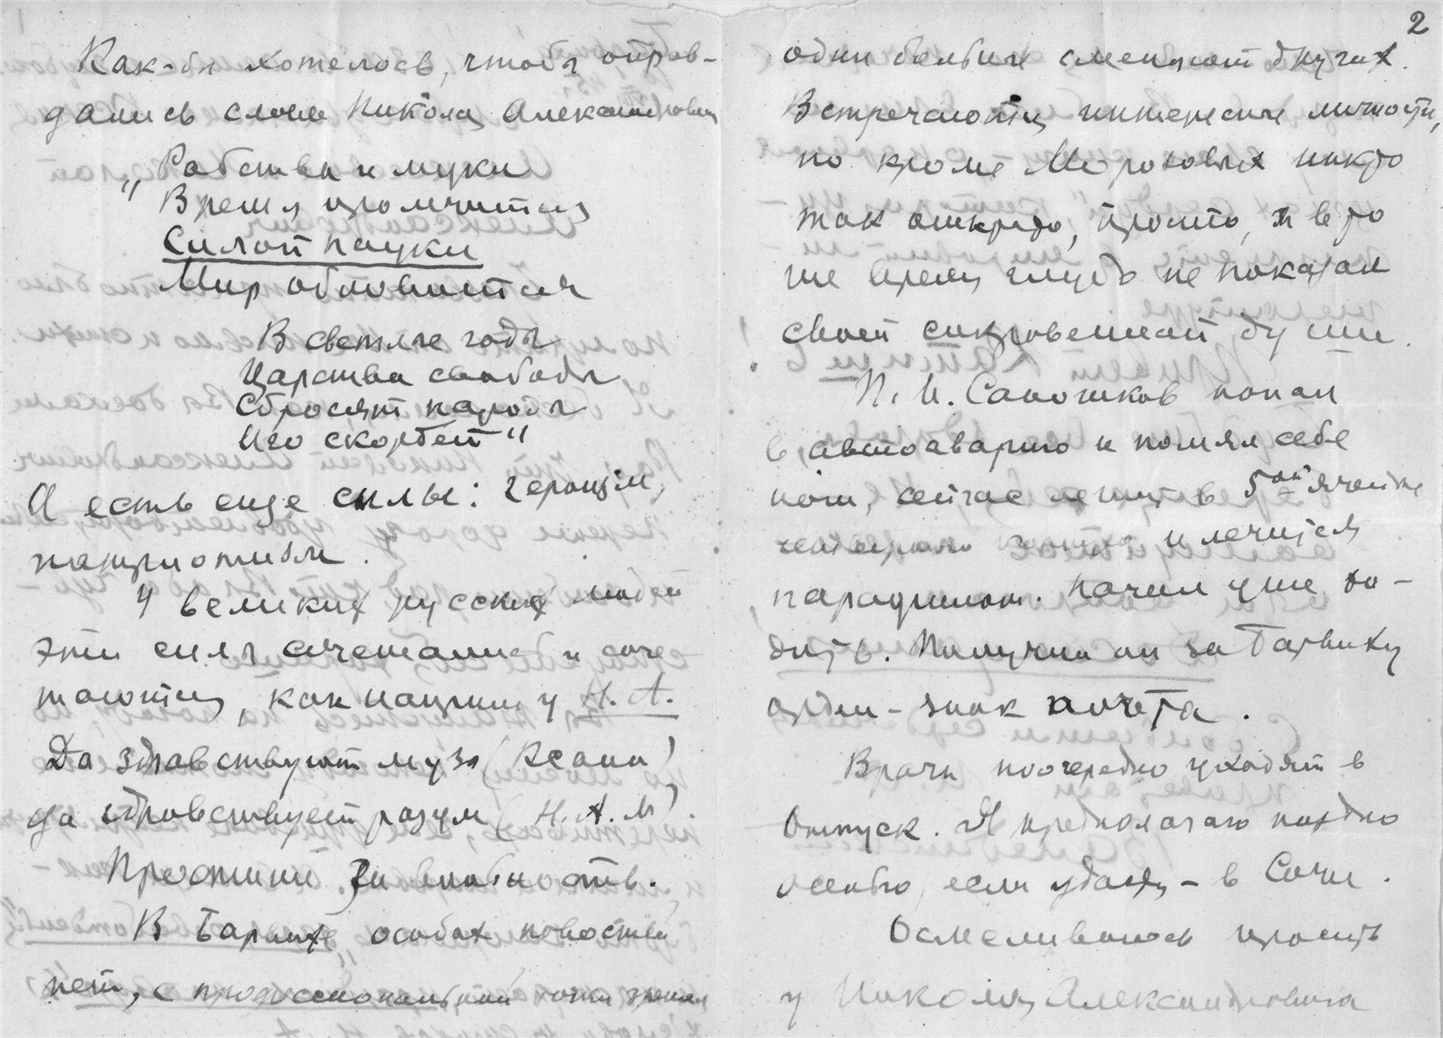 Как-бы хотелось, чтобы оправ-
дались слова Николая Александровича
„Рабства и муки
Время промчится
Силой науки
Мир обновится
В светлые годы
Царства свободы
Сбросят народы
Иго скорбей"
А есть еще силы: героизм,
патриотизм.
У великих русских людей
эти силы сочетались и соче
таются, как например у Н. А.
Да здравствуют музы (Ксана)
да здравствует разум (Н.А.М).
Простите за
В Барвихе особых новостей
нет, с профессиональной точки зрения
2
одни больные сменяют других.
Встречаются интересные личности,
но кроме Морозовых никто
так открыто, просто, и в то
же время глубо не показал
своей сокровенной души.
П. И. Сапожков попал
в автоаварию и помял себе
ноги, сейчас лежит в 5ой
и лечится
парафином. Начал уже хо-
дить. Получил он за Барвиху
орден - знак почета.
Врачи поочередно уходят в
отпуск. Я предполагаю поздно
осенью, если удастся - в Сочи.
Осмеливаюсь просить
у Николая Александровича